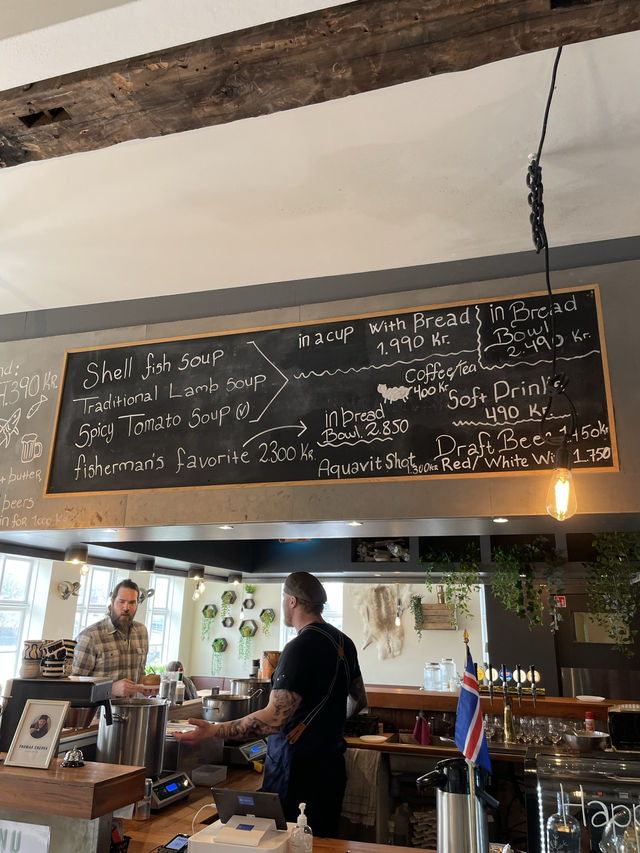 Shell fish soup
Traditional Lamb soup
Spicy Tomato Soup (V)
fisherman's favorite 2300 Kr.
in a cup With Bread
1.990 Kr.
in Bread
Bowl
2.490 Kr.
Coffee/Tea
400 Kr.
Soft Drinks
490 Kr.
in bread
Bowl. 2.850
Aquavit Shot 1.300 Kr.
Draft Beer 1.150 Kr
Red/White Wi 1.750
4.390 KR
+ butter
beers
in for 1000 Kr
Happ
NU